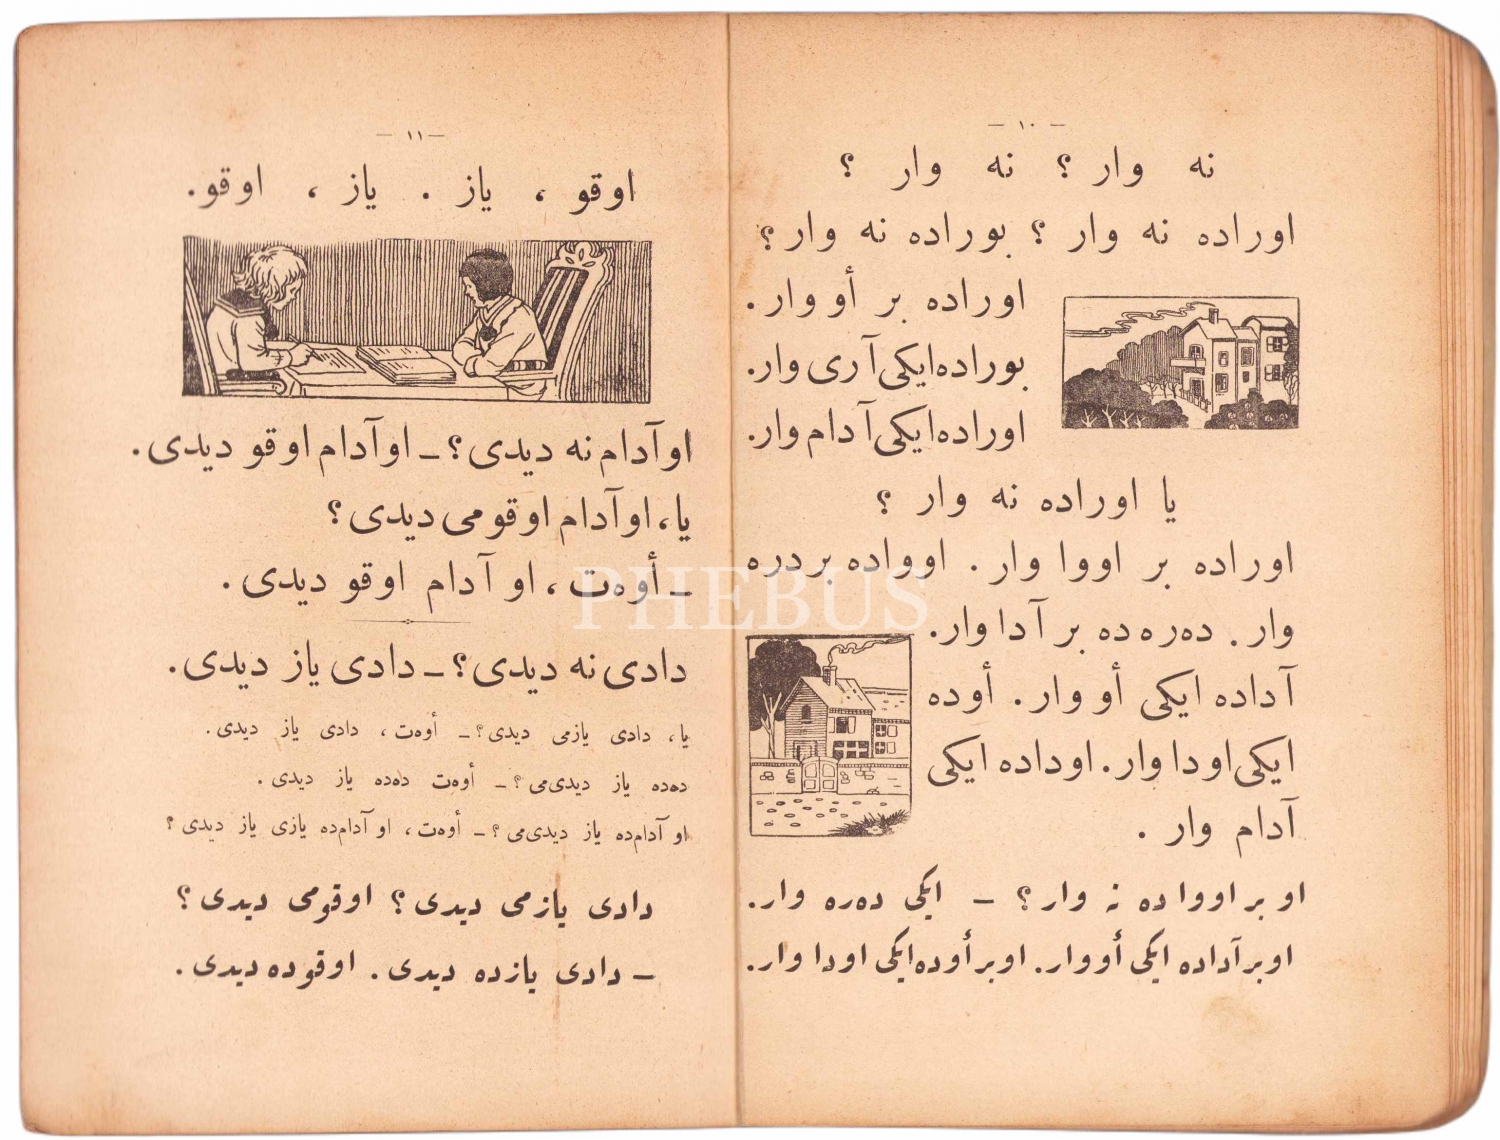 — ١٠ —
نه وار ؟ نه وار ؟
اوراده نه وار ؟ بوراده نه وار؟
اوراده بر أو وار.
بوراده ایکی آری وار.
اوراده ایکی آدام وار.
یا اوراده نه وار ؟
اوراده بر اووا وار . اوواده بر دره
وار. دەرەده بر آدا وار.
آداده ایکی أو وار. أوده
ایکی اودا وار. اوداده ایکی
آدام وار .
او بر اووا ده نه وار؟ – ایکی دەره وار.
اوبر آداده ایکی أو وار. اوبر أوده ایکی اودا وار.
— ١١ —
اوقو ، یاز . یاز ، اوقو.
او آدام نه دیدی؟ – او آدام اوقو دیدی.
یا، او آدام اوقو می دیدی؟
– أوەت ، او آدام اوقو دیدی.
دادی نه دیدی؟ – دادی یاز دیدی.
یا، دادی یازمی دیدی؟ – أوەت، دادی یاز دیدی.
دەده یاز دیدی‌می؟ – أوەت دەده یاز دیدی.
او آدام‌ده یاز دیدی‌می؟ – أوەت، او آدام‌ده یازی یاز دیدی؟
دادی یازمی دیدی؟ اوقومی دیدی؟
– دادی یازده دیدی. اوقوده دیدی.
PHEBUS